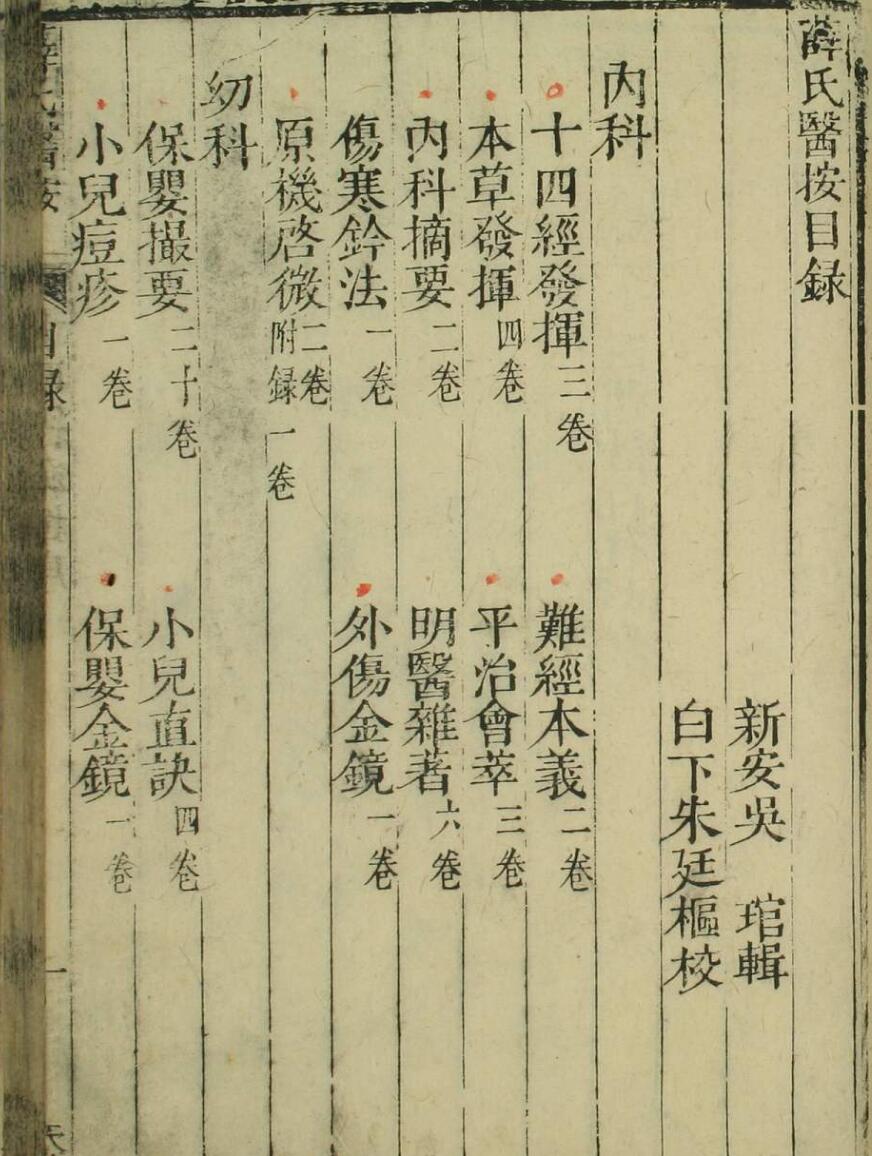 薛氏醫按目録
新安吳　琯輯
白下朱廷樞校
內科
十四經發揮三卷　難經本義二卷
本草發揮四卷　平治會萃三卷
內科摘要二卷　明醫雜著六卷
傷寒鈐法一卷　外傷金鏡一卷
原機啓微二卷附録一卷
幼科
保嬰撮要二十卷　小兒直訣四卷
小兒痘疹一卷　保嬰金鏡一卷
目録
一